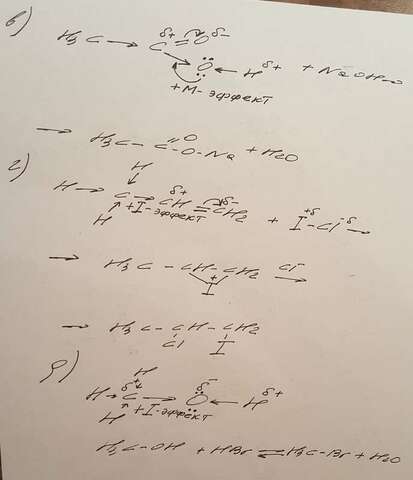 в)
H₃C → C = O
δ+ δ−
Ö ← H δ+ + NaOH →
+M-эффект
→ H₃C – C – O – Na + H₂O
O
г)
H
H → C → CH = CH₂ + I – Cl →
δ+ δ− +δ −δ
H +I-эффект
→ H₃C – CH – CH₂ Cl⁻ →
+
I
→ H₃C – CH – CH₂
Cl I
д)
H
H → C → O ← H
δ+ δ− δ+
H +I-эффект
H₃C – OH + HBr ⇌ H₃C – Br + H₂O